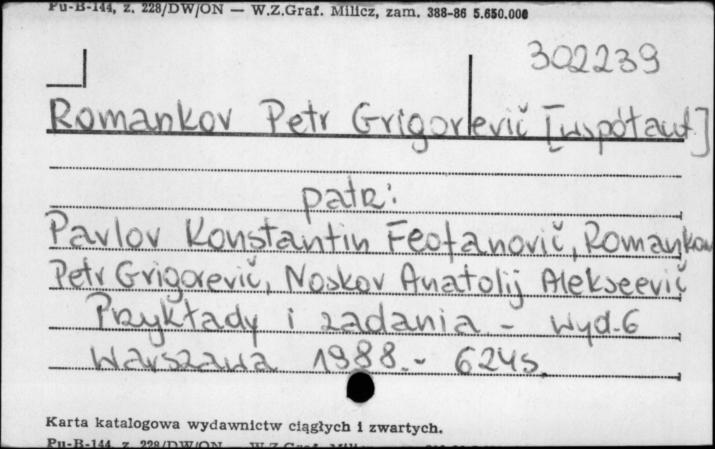 Pu-B-144, z. 228/DW/ON — W.Z.Graf. Milicz, zam. 388-86 5.650.000
302239
Romankov Petr Grigorevič [współaut]
patrz:
Pavlov Konstantin Feofanovič, Romankov
Petr Grigorevič, Noskov Anatolij Alekseevič
Przykłady i zadania - Wyd. 6
Warszawa 1988. - 624 s.
Karta katalogowa wydawnictw ciągłych i zwartych.
Pu-B-144, z. 228/DW/ON